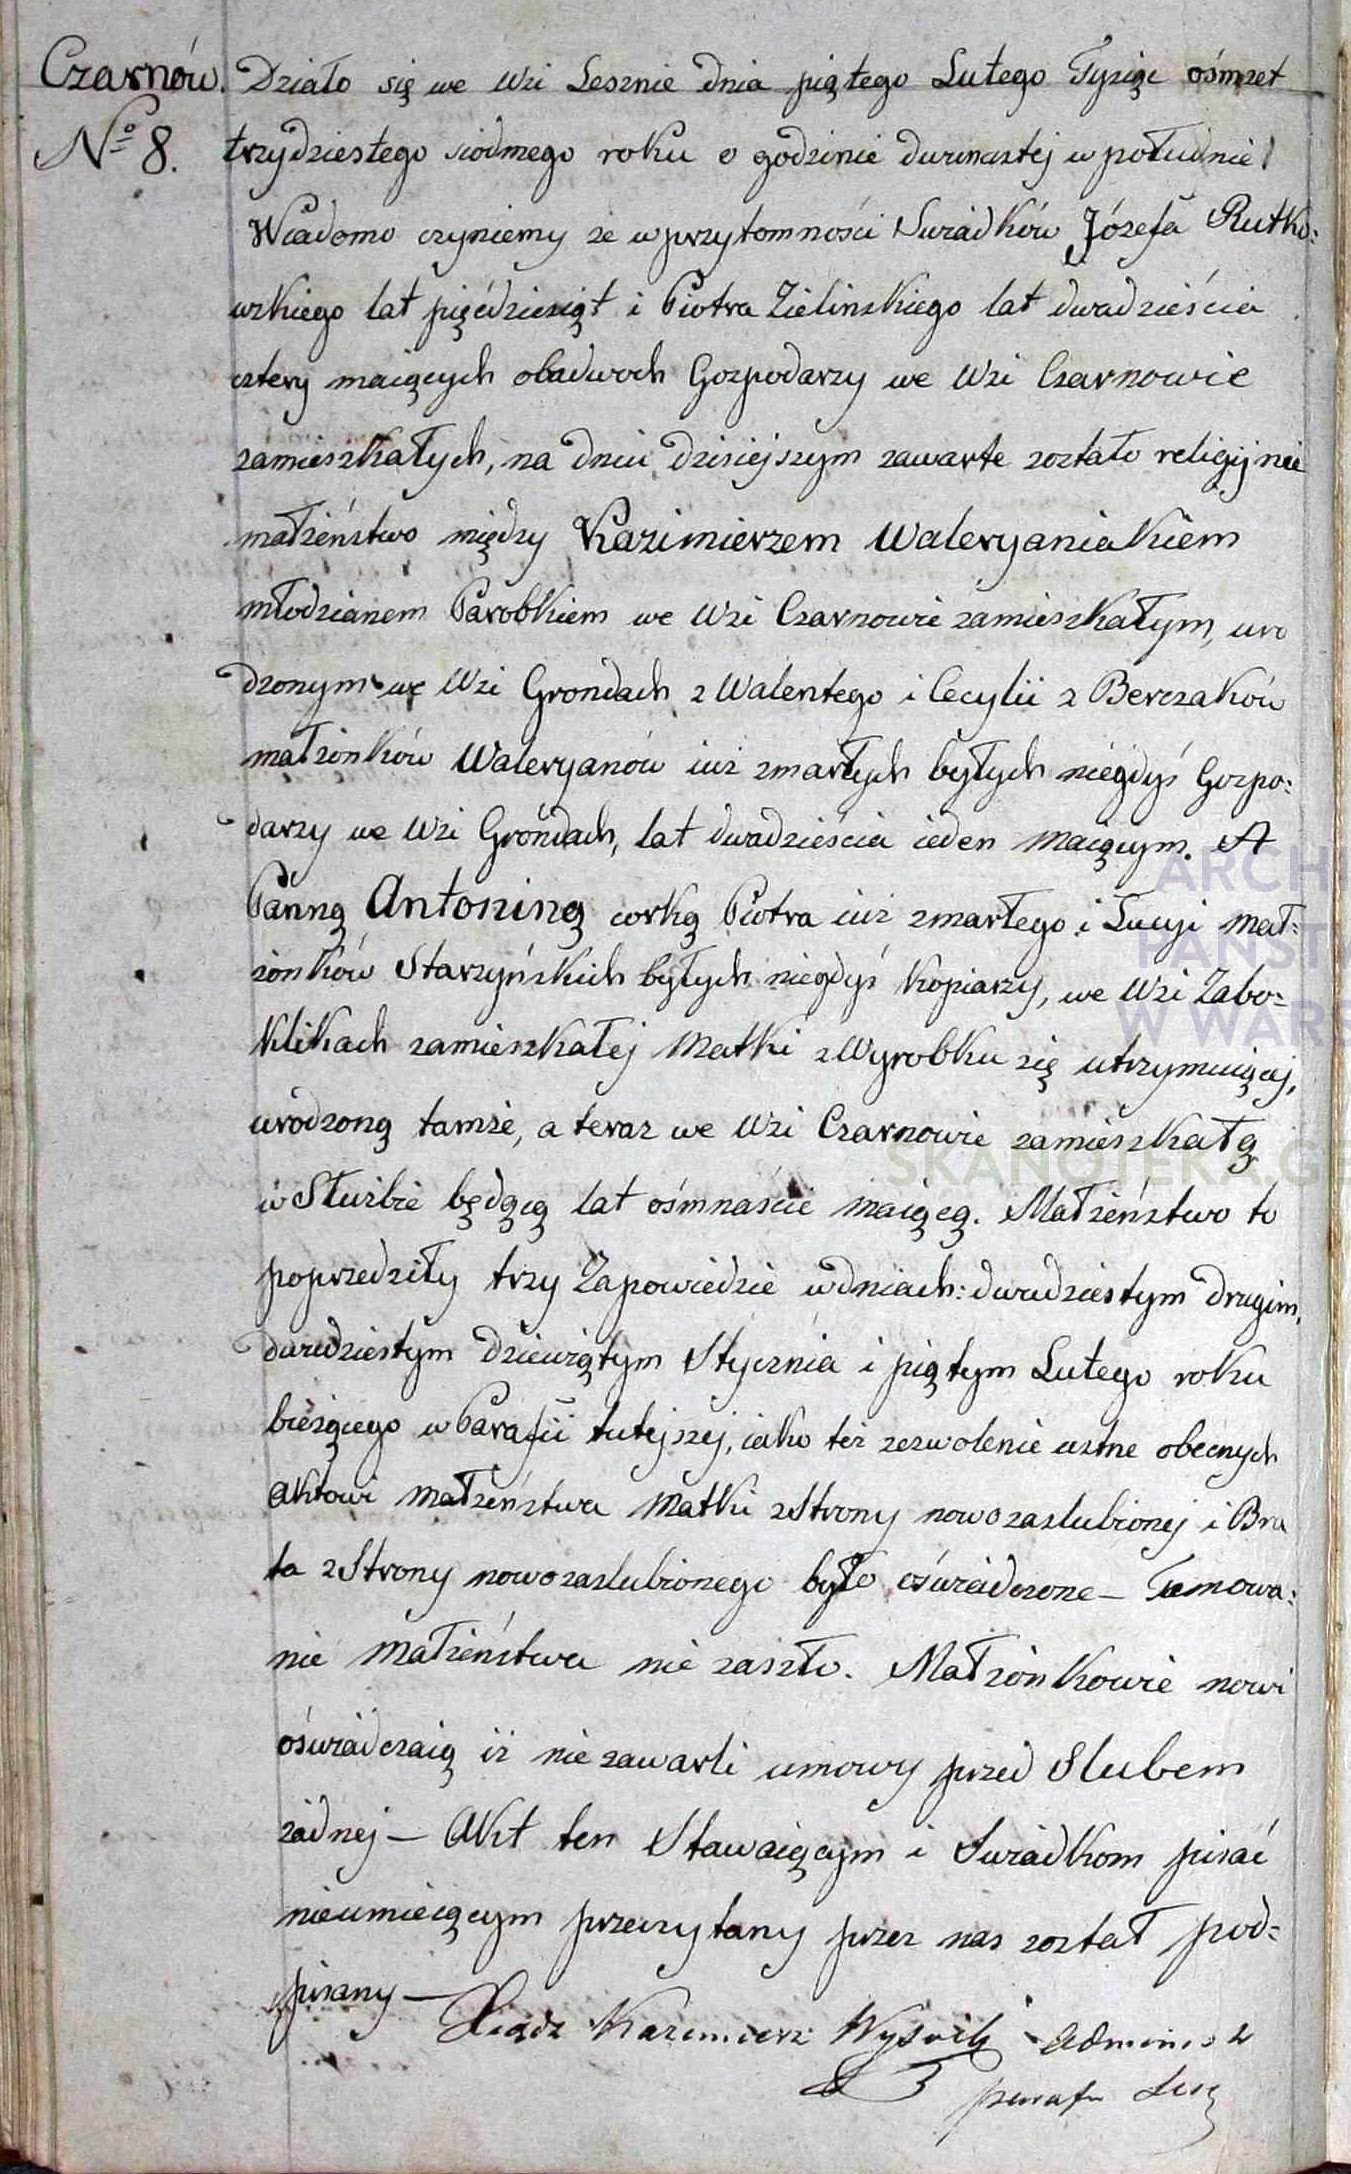 Czarnów. Działo się we Wsi Lesznie dnia piątego Lutego Tysiąc ośmset
Nº 8. trzydziestego siodmego roku o godzinie dwunastej w południe
Wiadomo czyniemy że w przytomności Swiadków Józefa Rutko:
wskiego lat pięćdziesiąt i Piotra Zielinskiego lat dwadzieścia
cztery maiących obadwoch Gospodarzy we Wsi Czarnowie
zamieszkałych, na dniu dzisiejszym zawarte zostało religijnie
małżeństwo między Kazimierzem Waleryaniakiem
młodzianem Parobkiem we Wsi Czarnowie zamieszkałym, uro
dzonym we Wsi Grondach z Walentego i Cecylii z Berczaków
małżonków Waleryanów iuż zmarłych byłych niegdyś Gospo:
darzy we Wsi Gróndach, lat dwadzieścia ieden maiącym. A
Panną Antoniną corką Piotra iuż zmarłego i Łucyi Mał:
żonków Starzyńskich byłych niegdyś Kopiarzy, we Wsi Zabo:
klikach zamieszkałej Matki z Wyrobku się utrzymuiącej,
urodzoną tamże, a teraz we Wsi Czarnowie zamieszkałą
w Służbie będącą lat ośmnaście maiącą. Małżeństwo to
poprzedziły trzy Zapowiedzie w dniach: dwudziestym drugim,
dwudziestym dziewiątym Stycznia i piątym Lutego roku
bieżącego w Parafii tutejszej, iako też zezwolenie ustne obecnych
Aktowi Małżeństwa Matki z Strony nowozaslubionej i Bra
ta z Strony nowozaslubionego było oświadczone — Tamowa:
nie Małżeństwa nie zaszło. Małżonkowie nowi
oświadczaią iż nie zawarli umowy przed Slubem
żadnej — Akt ten Stawaiącym i Swiadkom pisać
nieumieiącym przeczytany przez nas został pod:
pisany —
Xiądz Kazimierz Administ
Parafii
ARCHI
PAŃSTW
W WARS
SKANOTEKA.GE